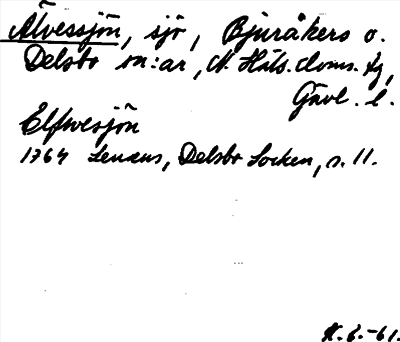 Älvessjön, sjö, Bjuråkers o.
Delsbo sn:ar, N. Häls. doms. fg,
Gävl. l.
Elfwesjön
1764 Lenæus, Delsbo Socken, s. 11.
H. E. -61.